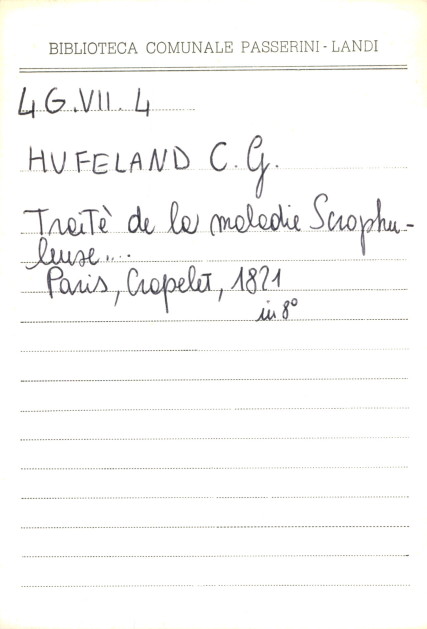 BIBLIOTECA COMUNALE PASSERINI - LANDI
4 G.VII.4
HUFELAND C. G.
Traitè de la maladie Scrophu-
leuse...
Paris, Crapelet, 1821
in 8°